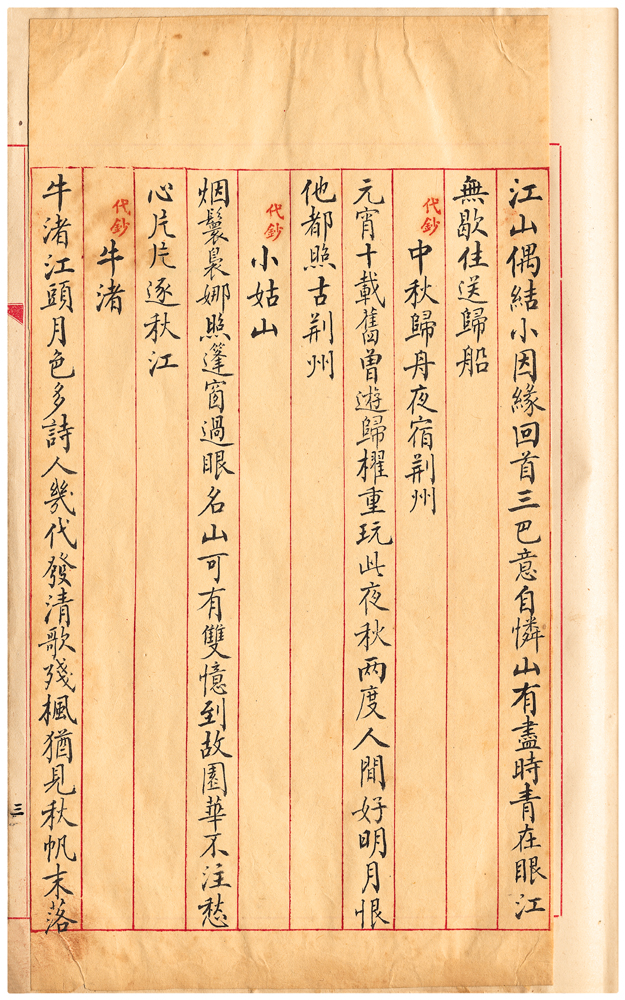 江山偶結小因緣回首三巴意自憐山有盡時青在眼江
無歇住送歸船
代鈔 中秋歸舟夜宿荆州
元宵十載舊曾遊歸櫂重玩此夜秋两度人間好明月恨
他都照古荆州
代鈔 小姑山
烟鬟裊娜照篷窗過眼名山可有雙憶到故園華不注愁
心片片逐秋江
代鈔 牛渚
牛渚江頭月色多詩人幾代發清歌殘楓猶見秋帆末落
三